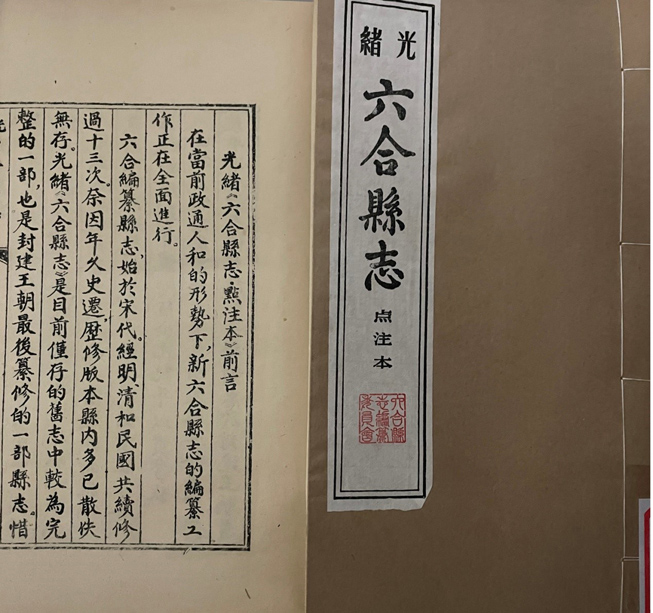 光緒《六合縣志·點注本》前言
在當前政通人和的形勢下，新六合縣志的編纂工
作正在全面進行。
六合編纂縣志，始於宋代。經明、清和民國共續修
過十三次。奈因年久史遷，歷修版本縣內多已散佚
無存。光緒《六合縣志》是目前僅存的舊志中較為完
整的一部，也是封建王朝最後纂修的一部縣志。惜
光緒
六合縣志
点注本
六合縣
志編纂
委員會